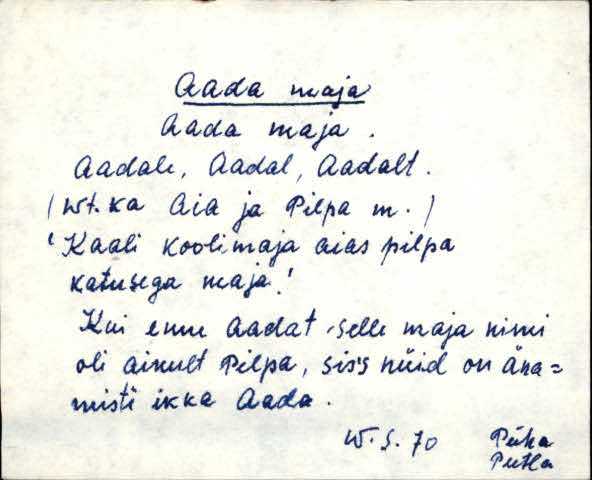 Aada maja
Aada maja.
Aadale, Aadal, Aadalt.
(Wt. ka Aia ja Pilpa m.)
'Kaali koolimaja aias pilpa
katusega maja.'
Kui enne Aadat selle maja nimi
oli ainult Pilpa, siss nüid on äna=
misti ikka Aada.
W.S. 70 Püha